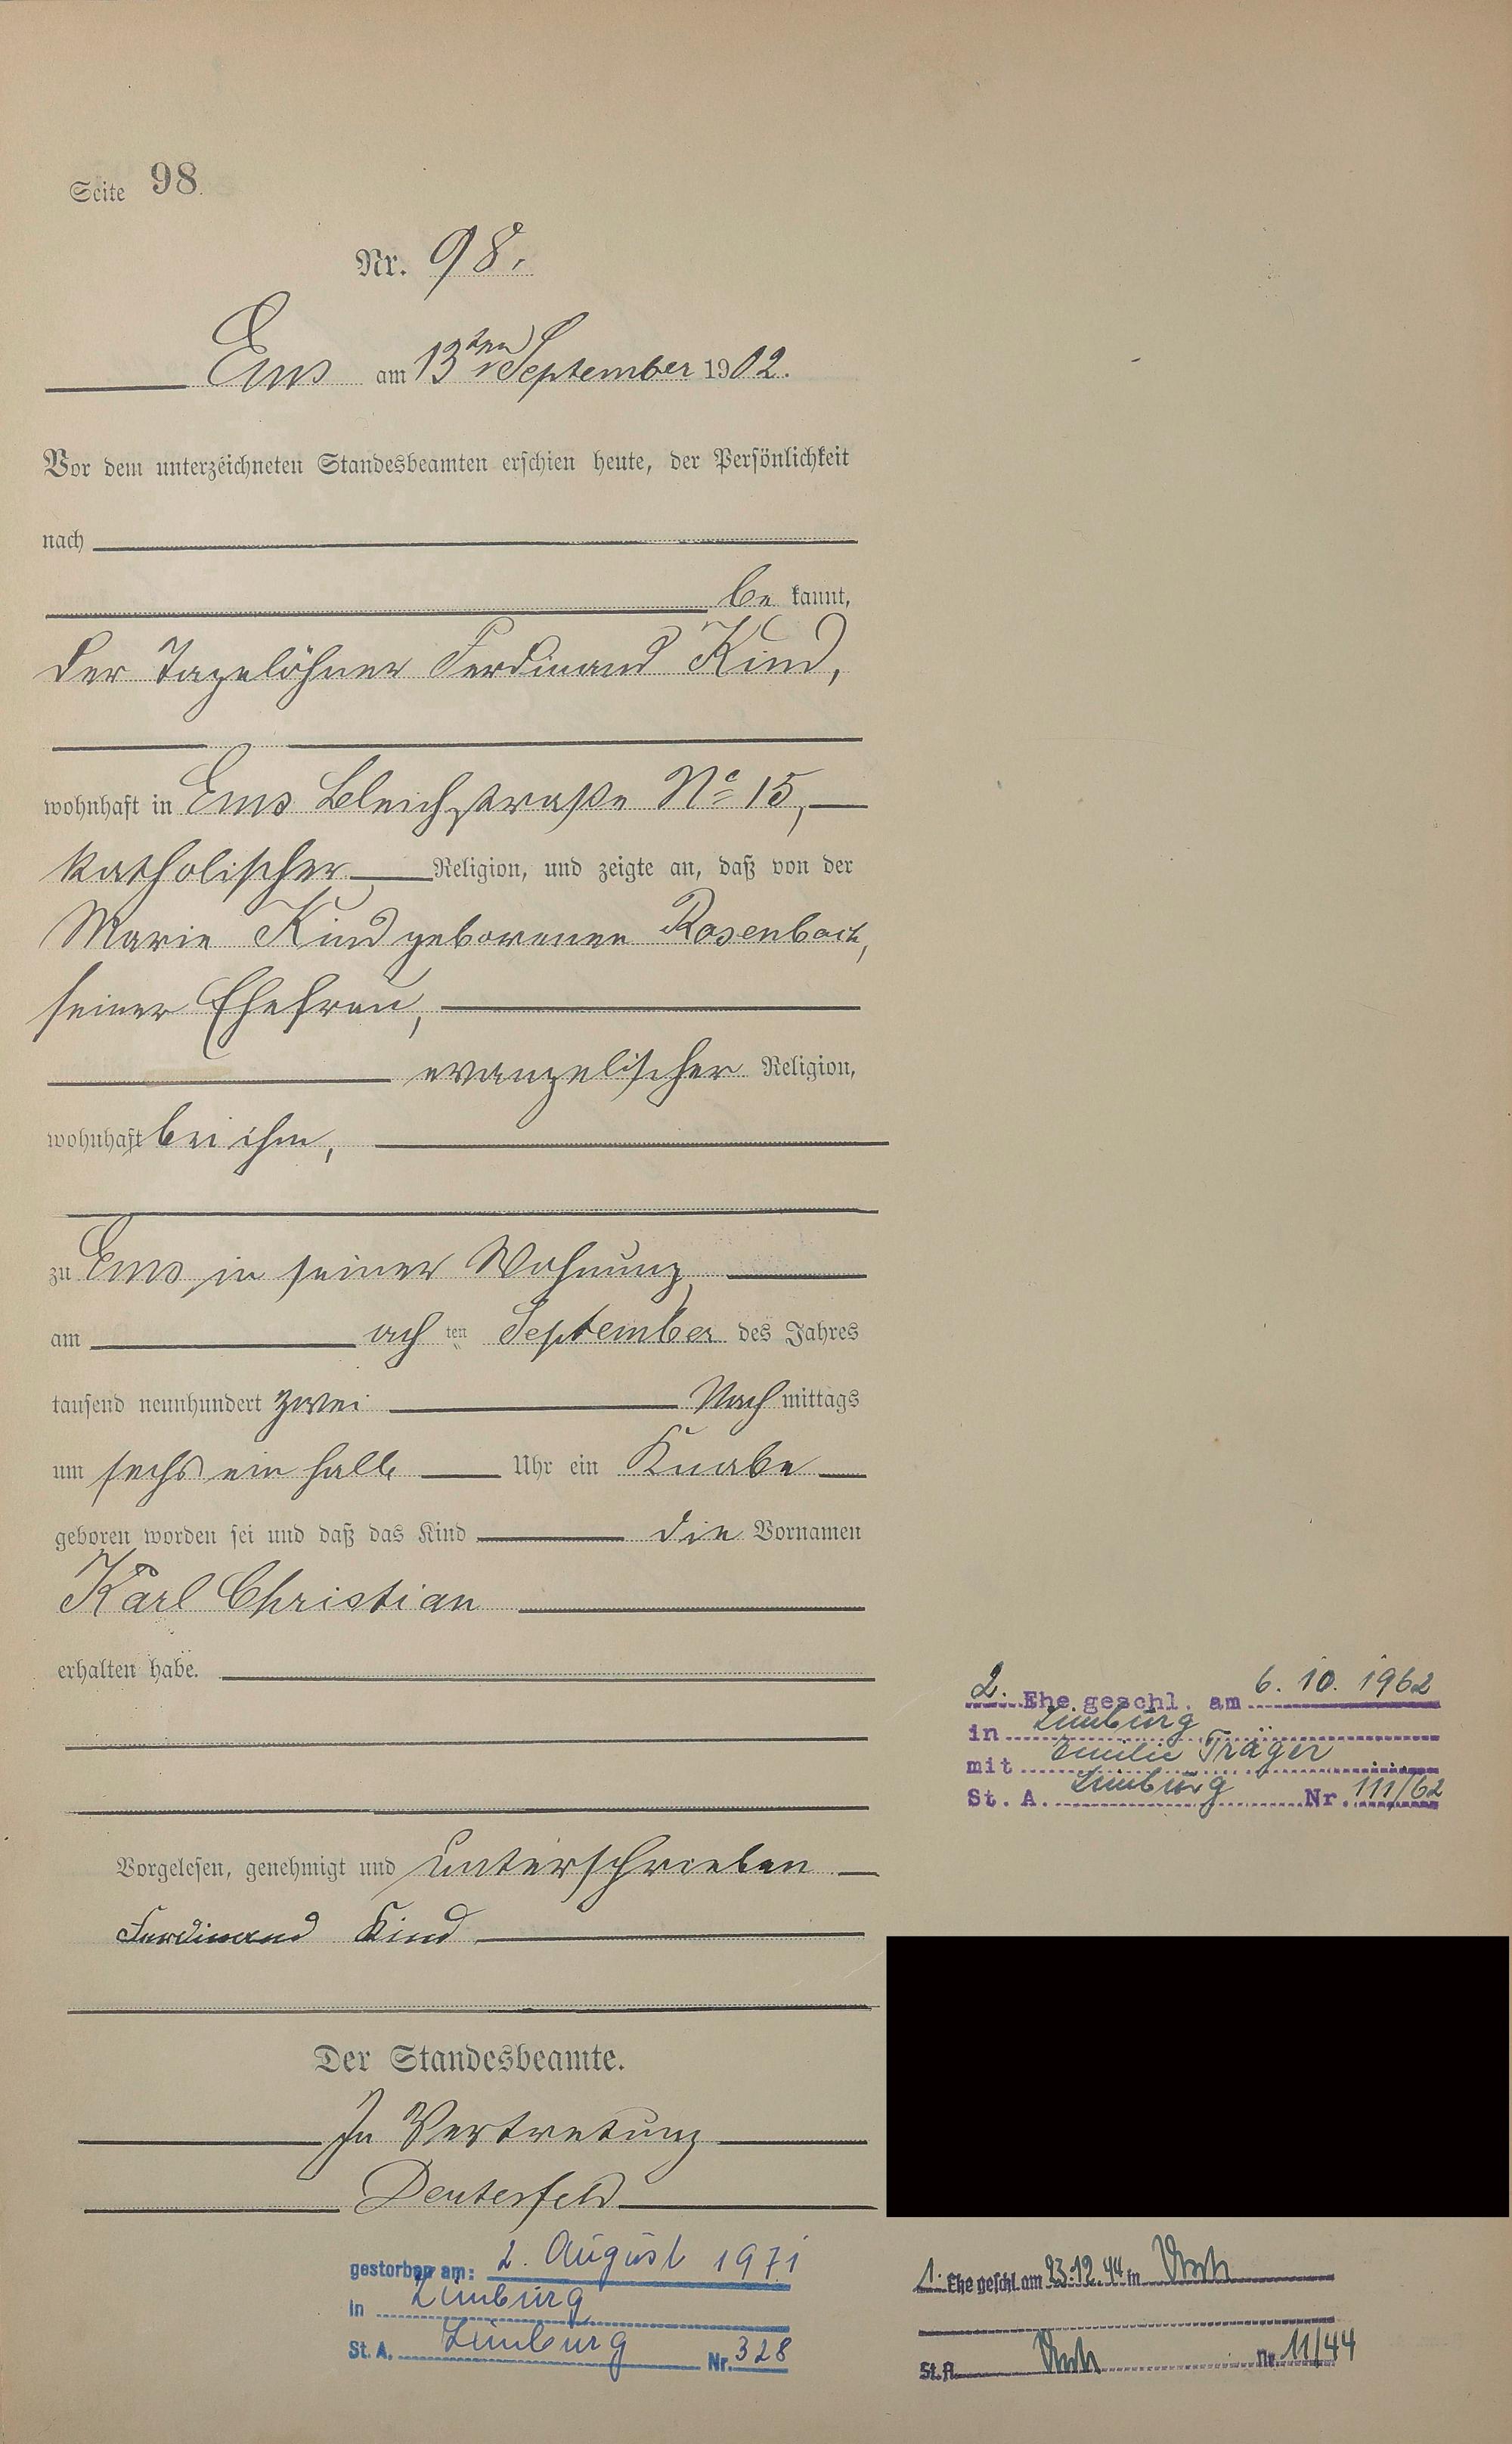 Seite 98.
Nr. 98.
Ems am 13ten September 1902.
Vor dem unterzeichneten Standesbeamten erschien heute, der Persönlichkeit
nach
be kannt,
der Tagelöhner Ferdinand Kind,
wohnhaft in Ems Bleichstraße No 15,
katholischer Religion, und zeigte an, daß von der
Marie Kind geborenen Rosenbach,
seiner Ehefrau,
evangelischer Religion,
wohnhaft bei ihm,
zu Ems in seiner Wohnung,
am ach ten September des Jahres
tausend neunhundert zwei Nach mittags
um sechs ein halb Uhr ein Knabe
geboren worden sei und daß das Kind die Vornamen
Karl Christian
erhalten habe.
Vorgelesen, genehmigt und unterschrieben
Ferdinand Kind
Der Standesbeamte.
In Vertretung
gestorben am: 2. August 1971
in Limburg
St. A. Limburg Nr. 328
2. Ehe geschl. am 6. 10. 1962
in Limburg
mit Emilie Träger
St. A. Limburg Nr. 111/62
1. Ehe geschl. am 23.12.44 in
St. A. Nr. 11/44